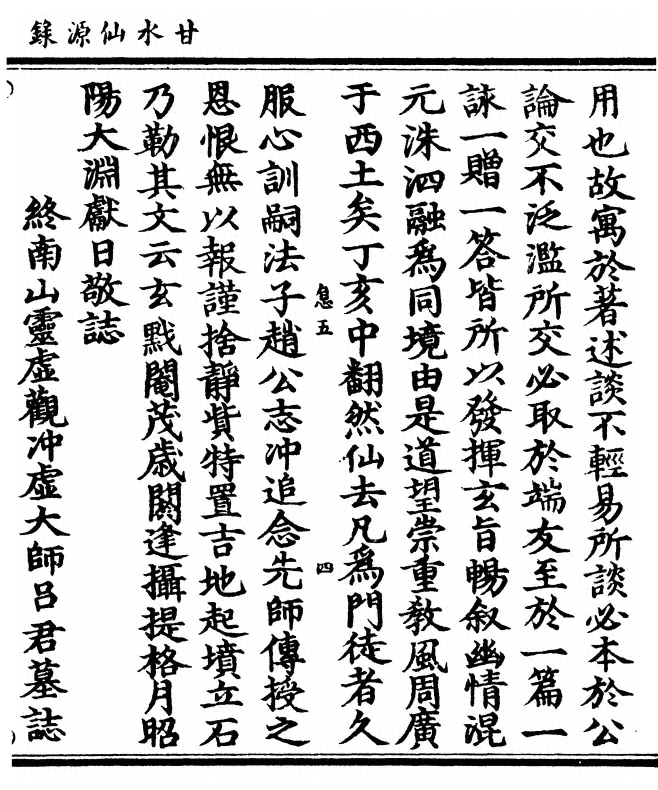 甘水仙源錄
用也故寓於著述談不輕易所談必本於公
論交不泛濫所交必取於端友至於一篇一
詠一贈一答皆所以發揮玄旨暢叙幽情混
元洙泗融爲同境由是道望崇重教風周廣
于西土矣丁亥中翻然仙去凡爲門徒者久
息五
四
服心訓嗣法子趙公志冲追念先師傳授之
恩恨無以報謹捨靜貲特置吉地起墳立石
乃勒其文云玄黓閹茂歲閼逢攝提格月昭
陽大淵獻日敬誌
終南山靈虛觀冲虛大師呂君墓誌